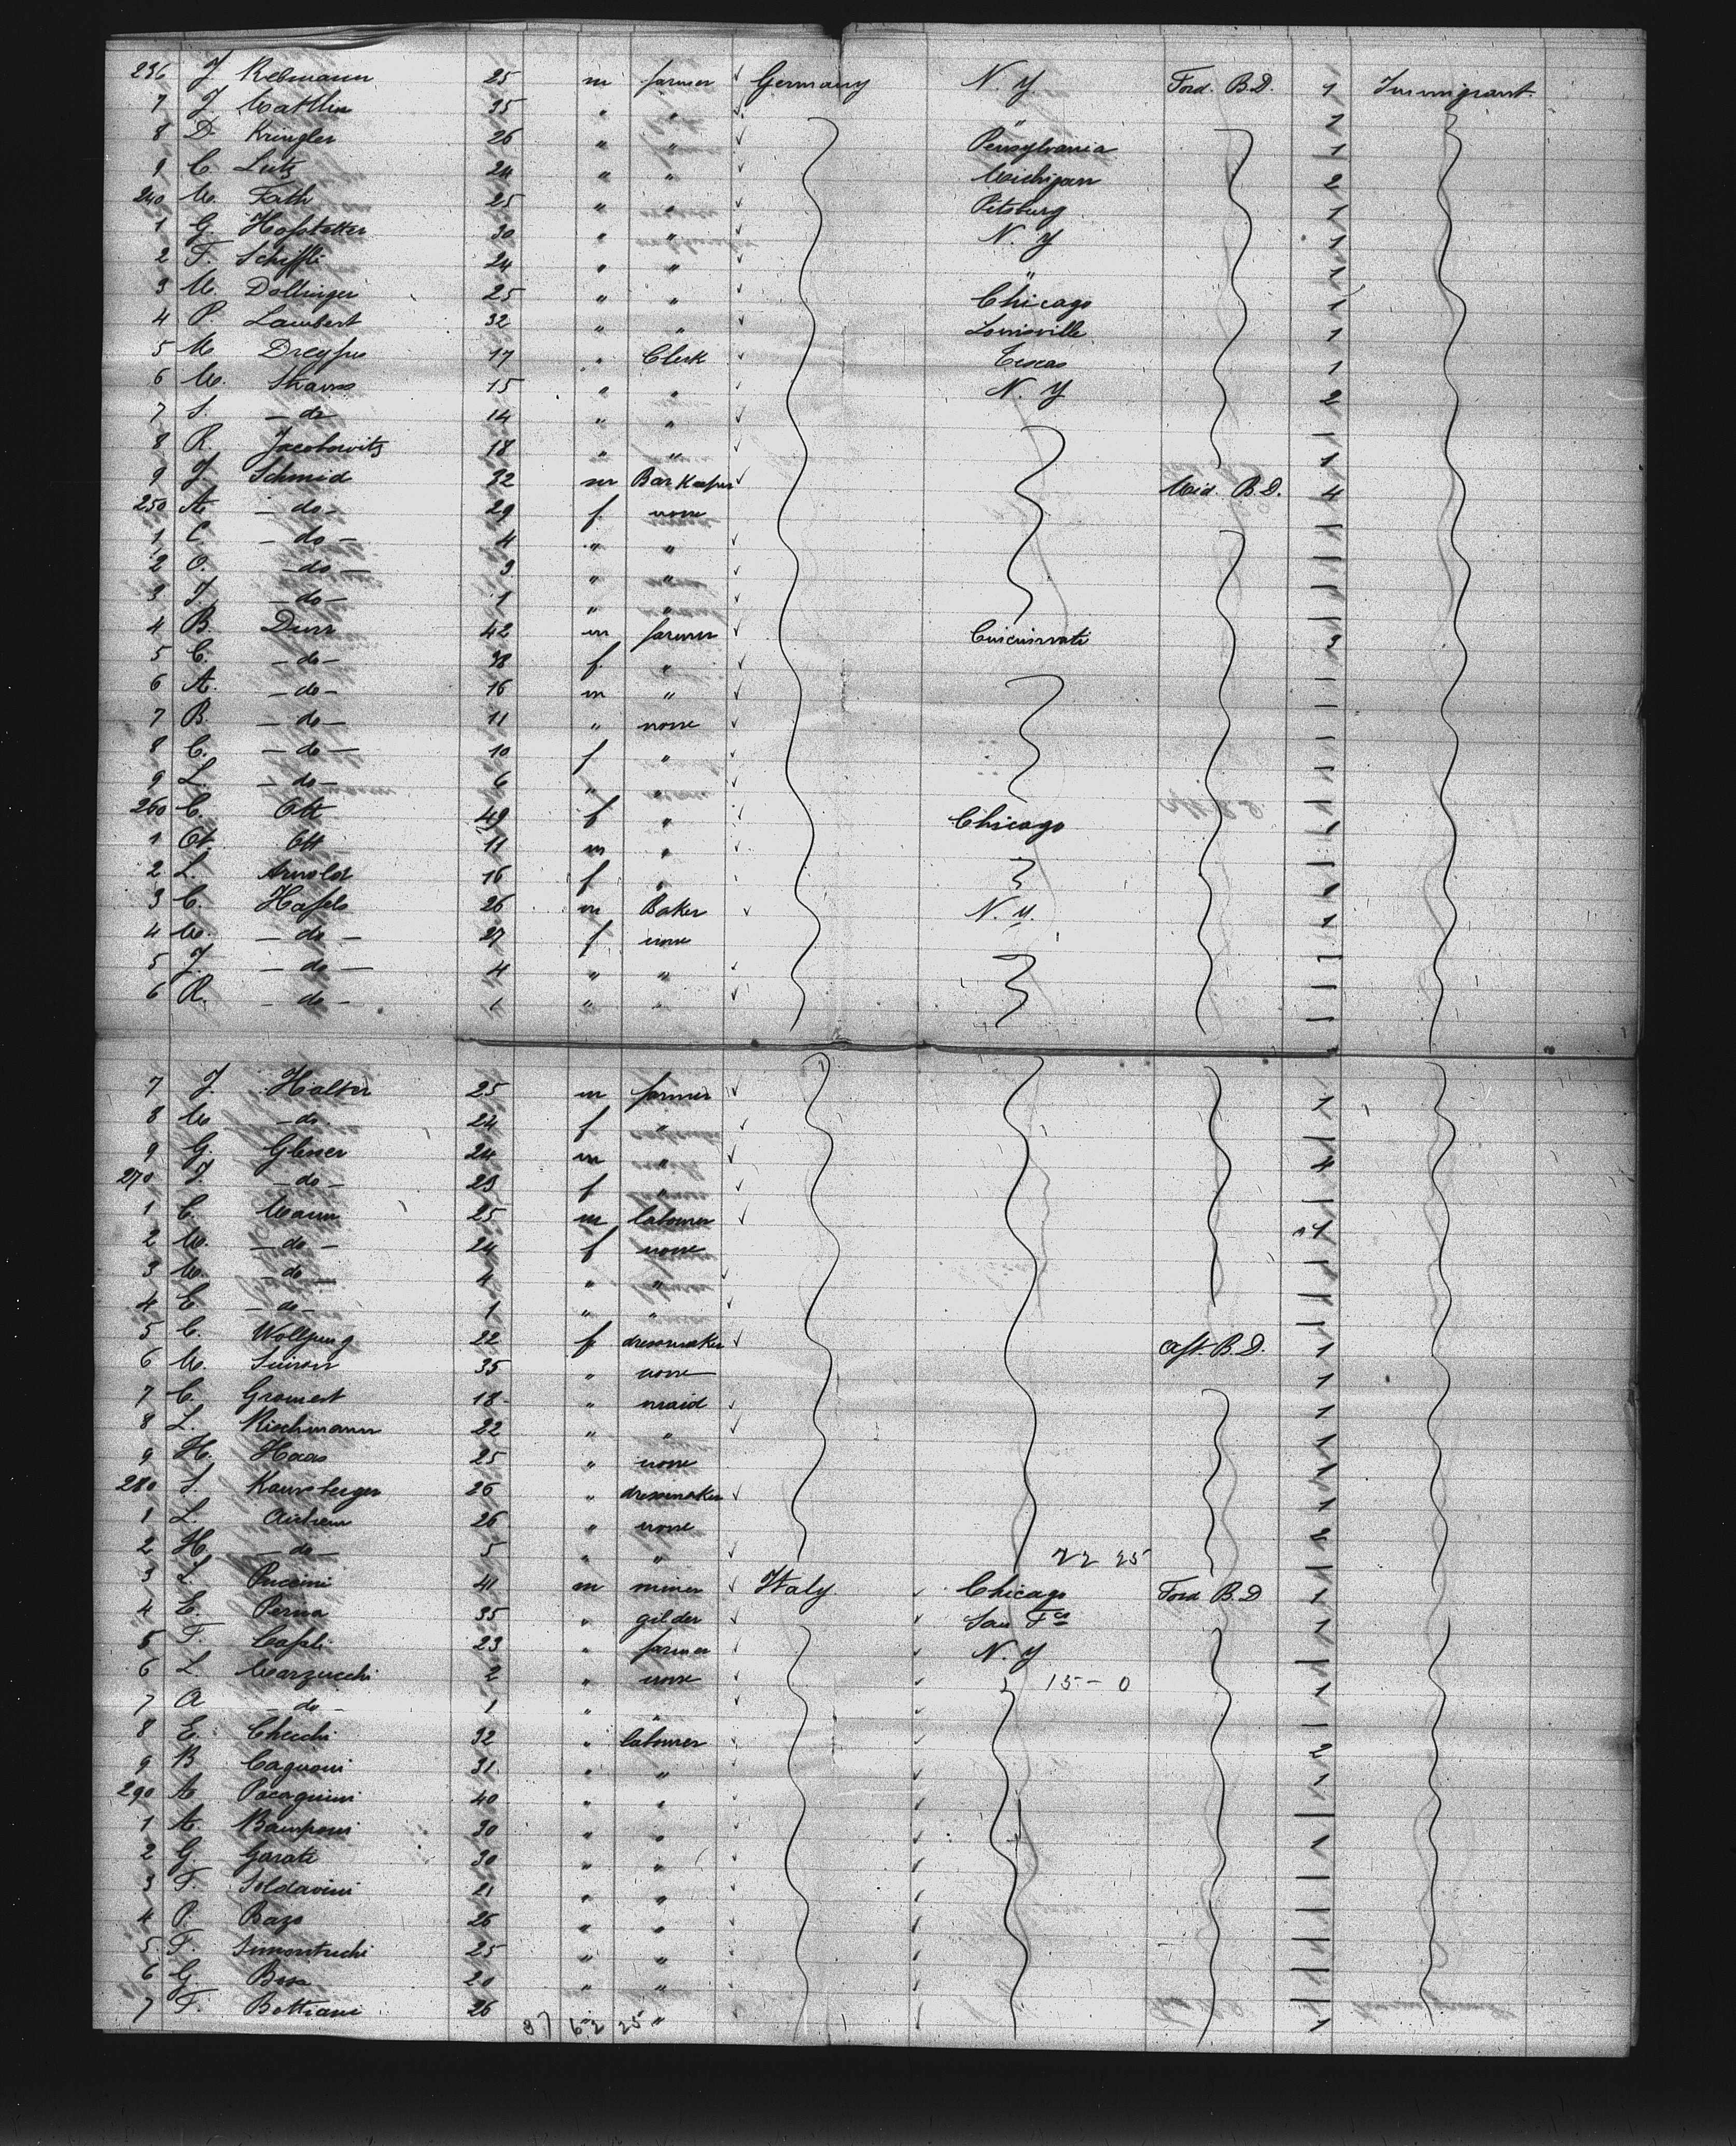 236 J. Rebmann 25 m farmer ✓ Germany N. Y. Ford. B.D. 1 Immigrant.
7 J. Matthu 35 " " ✓ " 1
8 D. Kringler 26 " " ✓ Pensylvania 1
9 C. Lutz 24 " " ✓ Michigan 2
240 M. Fath 25 " " ✓ Pitsburg 1
1 G. Hofstetter 30 " " ✓ N. Y 1
2 F. Schiffli 24 " " ✓ " 1
3 M. Dollinger 25 " " ✓ Chicago 1
4 P. Lambert 32 " " ✓ Louisville 1
5 M Dreyfus 17 " Clerk ✓ Texas 1
6 M. Strauss 15 " " ✓ N. Y 2
7 S. - do 14 " " ✓ |
8 R. Jacobowitz 18 " " ✓ 1
9 J. Schmid 32 m Barkeeper ✓ Mid. B.D. 4
250 A. - do - 29 f. none |
1 C. - do - 4 " " ✓ |
2 O. - do - 3 " " ✓ |
3 J. - do - 1 " " ✓ |
4 B. Durr 42 m farmer ✓ Cincinnati 3
5 C. - do - 38 f. " ✓ |
6 A. - do - 16 m " ✓ |
7 B. - do - 11 " none ✓ |
8 C. - do - 10 f " ✓ |
9 L. - do - 6 " " ✓ |
260 C. Ott 49 f " ✓ Chicago 1
1 Ott 11 m " ✓ |
2 L. Arnold 16 f " 1
3 C. 26 m Baker ✓ N. Y. 1
4 M. - do - 27 f none |
5 J. - do - 4 " " ✓ |
6 R. - do - " " ✓ |
7 J. Halter 25 m farmer ✓ 1
8 M - do. 24 f " ✓ |
9 G. Glesser 24 m " ✓ 4
270 J. - do - 23 f " ✓ |
1 C. Mann 25 m labourer ✓ 1
2 M. - do - 24 f none |
3 M. - do - 4 " " ✓ |
4 E - do - 1 " " ✓ |
5 C. Wollfung 22 f dressmaker ✓ Aft. B.D. 1
6 M. Simon 35 " none 1
7 C. Gromest 18 " maid ✓ 1
8 L. Rischmann 22 " " ✓ 1
9 H. Haas 25 " none 1
280 S. Kaunsberger 26 " dressmaker ✓ 1
1 L. 26 " none 2
2 H. - do - 5 " " ✓ 22 25 |
3 L. Puccini 41 m miner ✓ Italy ✓ Chicago Ford B.D 1
4 E. Perna 35 " gilder ✓ ✓ San Fco 1
5 F. 23 " farmer ✓ ✓ N. Y |
6 L. Marzucchi 2 " none ✓ 15 - 0 1
7 A - do - 1 " " ✓ ✓ |
8 E. Checchi 32 " labourer ✓ 2
9 B Cagnoni 31 " " ✓ ✓ 1
290 A. Pacagnini 40 " " ✓ ✓ |
1 A. Bamponi 30 " " ✓ ✓ 1
2 G. Garate 30 " " ✓ ✓ |
3 F. Soldavini 21 " " ✓ ✓ |
4 P. Bazo 26 " " ✓ ✓ |
5 F. Simontuchi 25 " " ✓ ✓ |
6 G. 20 " " ✓ ✓ |
7 F. Bottiani 26 " " ✓ ✓ 1
37 62 25